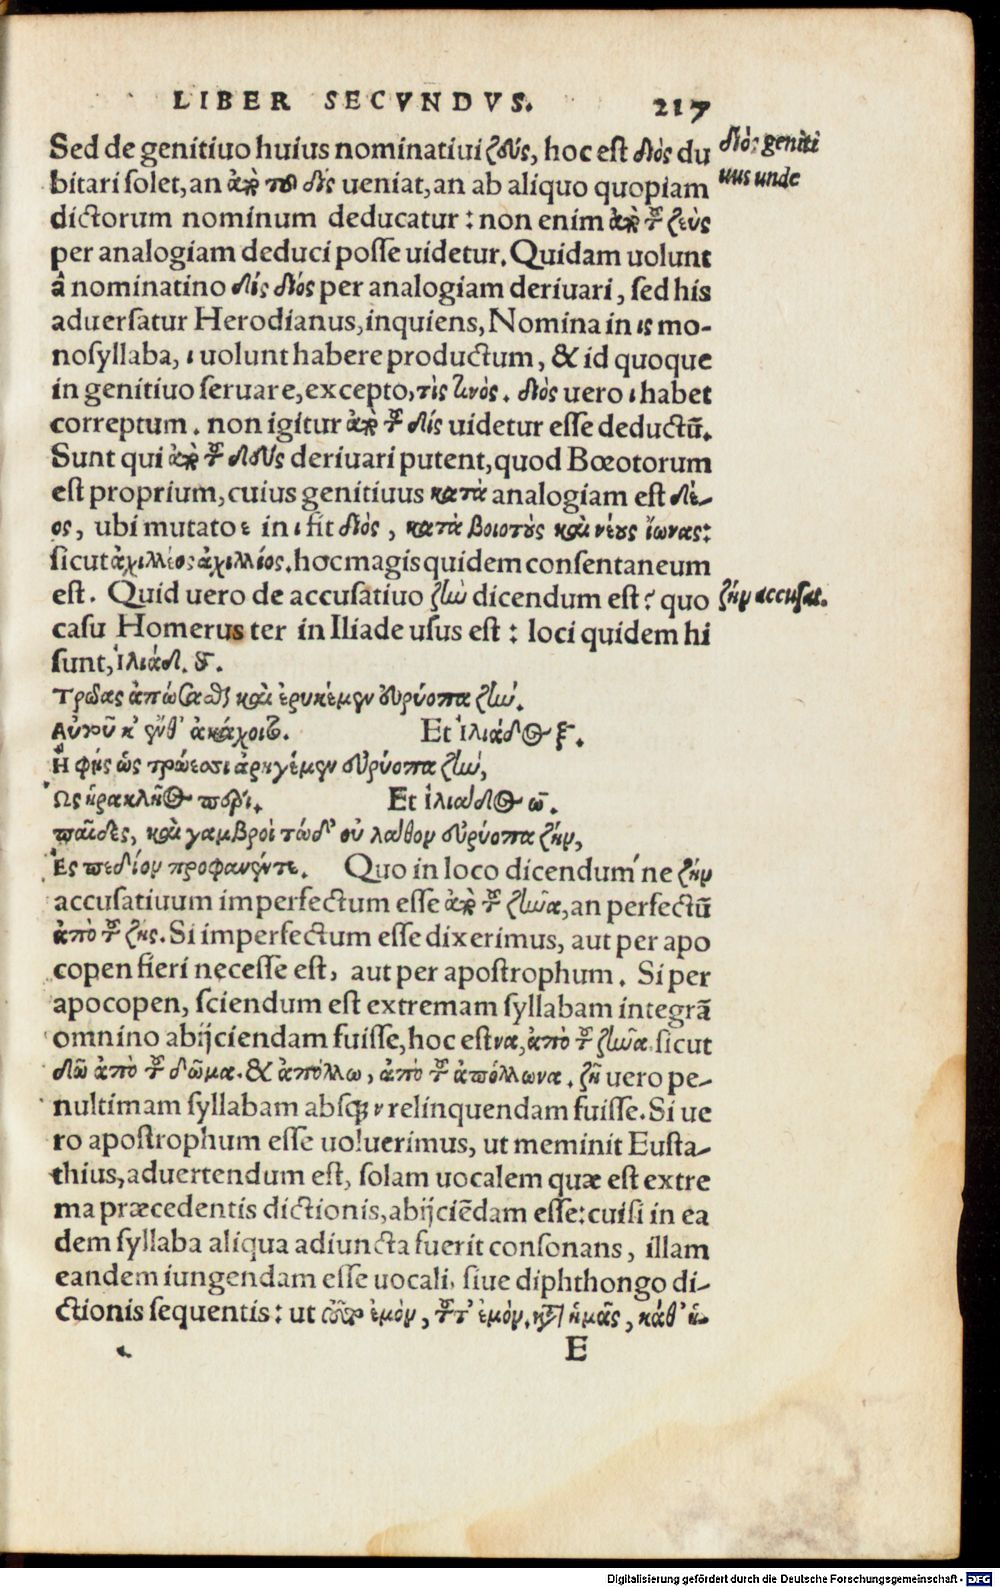 LIBER SECVNDVS. 217
Sed de genitiuo huius nominatiui ζεύς, hoc est διὸς du
bitari solet, an ἀπὸ τοῦ δὶς ueniat, an ab aliquo quopiam
dictorum nominum deducatur: non enim ἀπὸ τοῦ ζεὺς
per analogiam deduci posse uidetur. Quidam uolunt
â nominatino δίς διός per analogiam deriuari, sed his
aduersatur Herodianus, inquiens, Nomina in ις mo-
nosyllaba, ι uolunt habere productum, & id quoque
in genitiuo seruare, excepto, τὶς τινὸς. διὸς uero ι habet
correptum. non igitur ἀπὸ τοῦ δίς uidetur esse deductū.
Sunt qui ἀπὸ τοῦ δεύς deriuari putent, quod Bœotorum
est proprium, cuius genitiuus κατὰ analogiam est δέ-
ος, ubi mutato ε in ι fit διὸς, κατὰ βοιοτοὺς καὶ νέους ἴωνας:
sicut ἀχιλλέος ἀχιλλίος. hoc magis quidem consentaneum
est. Quid uero de accusatiuo ζην dicendum est? quo
casu Homerus ter in Iliade usus est: loci quidem hi
sunt, ἰλιάδ. θ.
Τρῶας ἀπώσασθαι καὶ ἐρυκέμεν εὐρύοπα ζην.
Αὐτοῦ κ' ἔνθ' ἀκάχοιτο. Et ἰλιάδος ξ.
Ἦ φῂς ὡς τρώεσσι ἀρηγέμεν εὐρύοπα ζην,
Ὡς ἡρακλῆος περί. Et ἰλιάδος ω.
παῖδες, καὶ γαμβροὶ τὼ δ' οὐ λάθον εὐρύοπα ζῆν,
Ἐς πεδίον προφανέντε. Quo in loco dicendum'ne ζῆν
accusatiuum imperfectum esse ἀπὸ τοῦ ζηνα, an perfectū
ἀπὸ τοῦ ζης. Si imperfectum esse dixerimus, aut per apo
copen fieri necesse est, aut per apostrophum. Si per
apocopen, sciendum est extremam syllabam integrā
omnino abijciendam fuisse, hoc est να, ἀπὸ τοῦ ζηνα. sicut
δῶ ἀπὸ τοῦ δῶμα. & ἀπόλλω, ἀπὸ τοῦ ἀπόλλωνα. ζῆ uero pe-
nultimam syllabam absq; ν relinquendam fuisse. Si ue
ro apostrophum esse uoluerimus, ut meminit Eusta-
thius, aduertendum est, solam uocalem quæ est extre
ma præcedentis dictionis, abijciēdam esse: cui si in ea
dem syllaba aliqua adiuncta fuerit consonans, illam
eandem iungendam esse uocali, siue diphthongo di-
ctionis sequentis: ut ἐμὸν, τοῦτ' ἐμὸν. ἡμᾶς, κάθ' ἡ-
E
διὸς geniti
uus unde
ζῆν accusat.
Digitalisierung gefördert durch die Deutsche Forschungsgemeinschaft - DFG